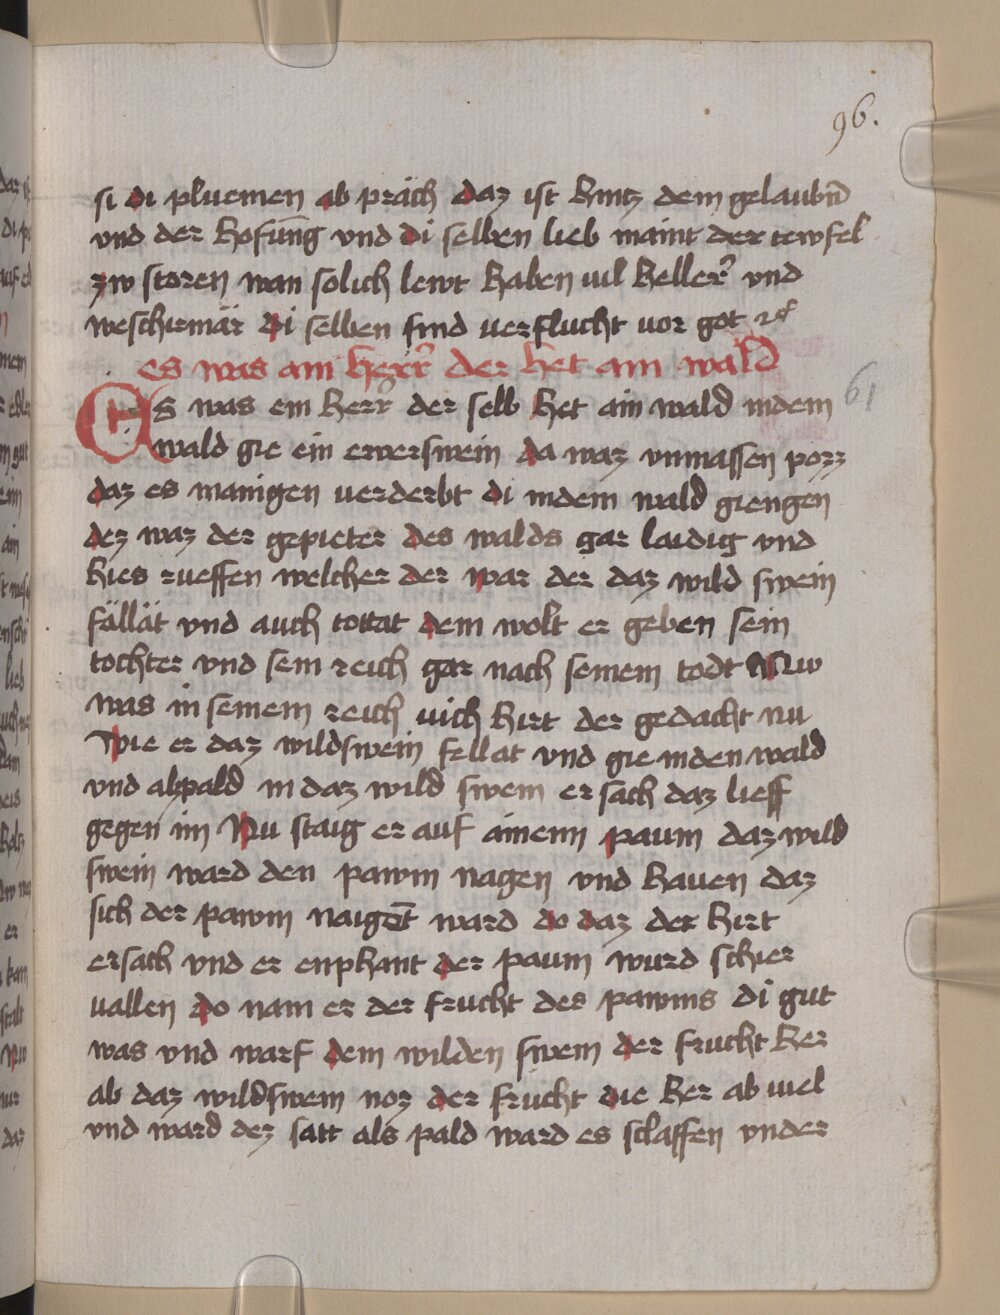 96.
si di pluemen ab präch daz ist hintz dem gelaubn̄
vnd der hofūng vnd di selben lieb maint der tewfel
zw storen wan solich lewt haben uil heller̄ vnd
weschirmär di selben sind uerflucht uor got
es was ain herr̄ der het ain wald
61
Es was ein herr̄ der selb het ain wald indem
wald gie ein eberswein da waz vnmassen pozz
daz es manigen uerderbt di indem wald giengen
dez waz der gepieter des walds gar laidig vnd
hies rueffen welcher der war der daz wild swein
fällät vnd auch tottat dem wolt er geben sein
tochter vnd sein reich gar nach seinem todt Nw
was in seinem reich uich hirt der gedacht nu
Wie er daz wildswein fellat vnd gie inden wald
vnd alspald in daz wild swein ersach daz lieff
gegen im Nu staig er auf ainenn paum daz wild
swein ward den pawm nagen vnd hauen daz
sich der pawm naigēt ward do daz der hirt
ersach vnd er enphant der paum wurd schier
uallen do nam er der frucht des pawms di gut
was vnd warf dem wilden swein der frucht her
ab daz wildswein noz der frucht die her ab uiel
vnd ward dez satt als pald ward es sclaffen vnder